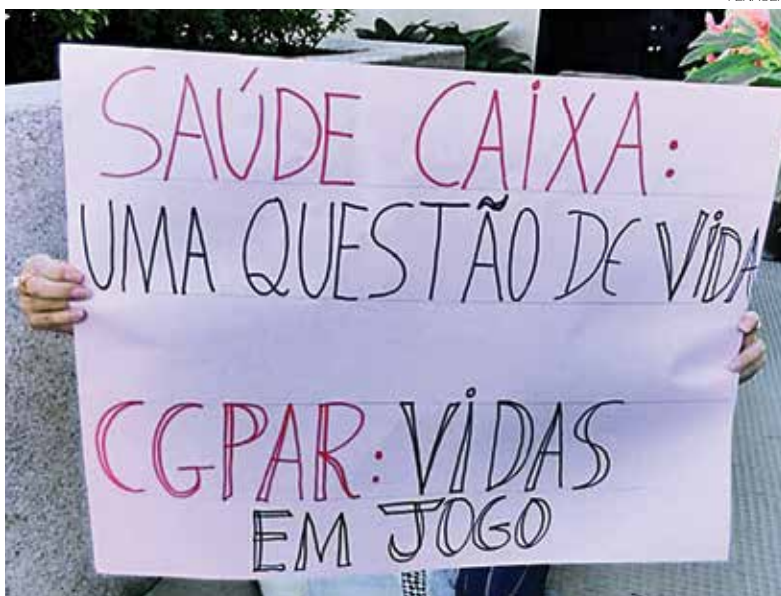 SAÚDE CAIXA:
UMA QUESTÃO DE VIDA
CGPAR: VIDAS
EM JOGO